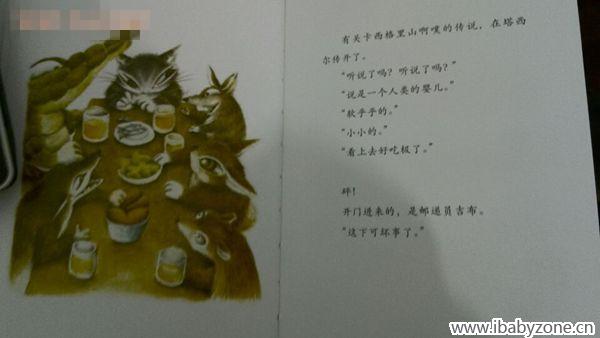 有关卡西格里山啊噗的传说，在塔西
尔传开了。
“听说了吗？听说了吗？”
“说是一个人类的婴儿。”
“软乎乎的。”
“小小的。”
“看上去好吃极了。”
砰！
开门进来的，是邮递员吉布。
“这下可坏事了。”
www.ibabyzone.cn